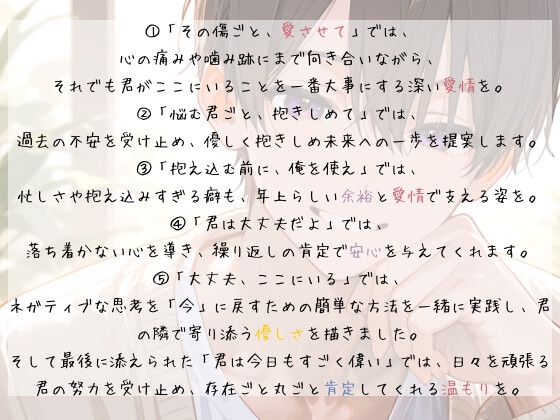 ①「その傷ごと、愛させて」では、
心の痛みや噛み跡にまで向き合いながら、
それでも君がここにいることを一番大事にする深い愛情を。
②「悩む君ごと、抱きしめて」では、
過去の不安を受け止め、優しく抱きしめ未来への一歩を提案します。
③「抱え込む前に、俺を使え」では、
忙しさや抱え込みすぎる癖も、年上らしい余裕と愛情で支える姿を。
④「君は大丈夫だよ」では、
落ち着かない心を導き、繰り返しの肯定で安心を与えてくれます。
⑤「大丈夫、ここにいる」では、
ネガティブな思考を「今」に戻すための簡単な方法を一緒に実践し、君
の隣で寄り添う優しさを描きました。
そして最後に添えられた「君は今日もすごく偉い」では、日々を頑張る
君の努力を受け止め、存在ごと丸ごと肯定してくれる温もりを。